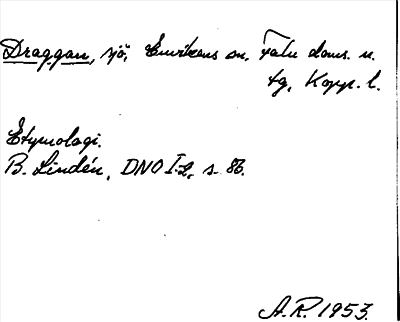 Draggan, sjö, Envikens sn. Falu doms. n.
tg, Kopp. l.
Etymologi.
B. Lindén, DNO I:2, s. 86.
A.R. 1953.